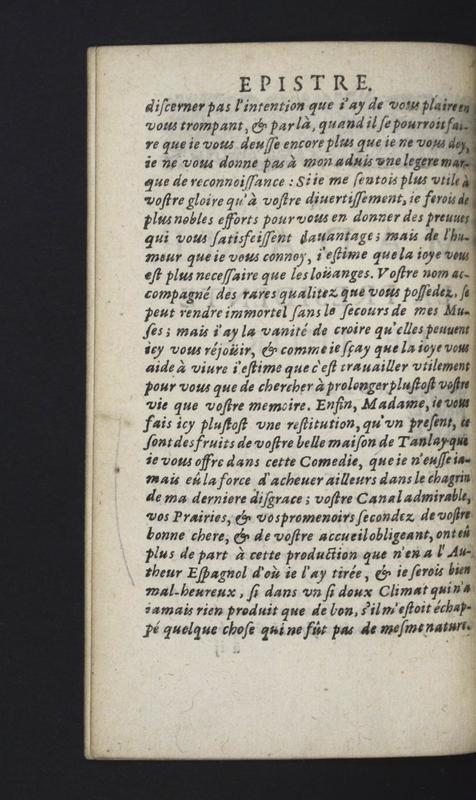 EPISTRE.
discerner pas l'intention que i'ay de vous plaire en
vous trompant, & par là, quand il se pourroit fai-
re que ie vous deusse encore plus que ie ne vous doy,
ie ne vous donne pas à mon aduis vne legere mar-
que de reconnoissance : Si ie me sentois plus vtile à
vostre gloire qu'à vostre diuertissement, ie ferois de
plus nobles efforts pour vous en donner des preuues
qui vous satisfeissent dauantage ; mais de l'hu-
meur que ie vous connoy, i'estime que la ioye vous
est plus necessaire que les loüanges. Vostre nom ac-
compagné des rares qualitez que vous possedez, se
peut rendre immortel sans le secours de mes Mu-
ses ; mais i'ay la vanité de croire qu'elles peuuent
icy vous réjoüir, & comme ie sçay que la ioye vous
aide à viure i'estime que c'est trauailler vtilement
pour vous que de chercher à prolonger plustost vostre
vie que vostre memoire. Enfin, Madame, ie vous
fais icy plustost vne restitution, qu'vn present, ce
sont des fruits de vostre belle maison de Tanlay que
ie vous offre dans cette Comedie, que ie n'eusse ia-
mais eû la force d'acheuer ailleurs dans le chagrin
de ma derniere disgrace ; vostre Canal admirable,
vos Prairies, & vos promenoirs secondez de vostre
bonne chere, & de vostre accueil obligeant, ont eû
plus de part à cette production que n'en a l'Au-
theur Espagnol d'où ie l'ay tirée, & ie serois bien
mal-heureux, si dans vn si doux Climat qui n'a
iamais rien produit que de bon, s'il m'estoit échap-
pé quelque chose qui ne fût pas de mesme nature.